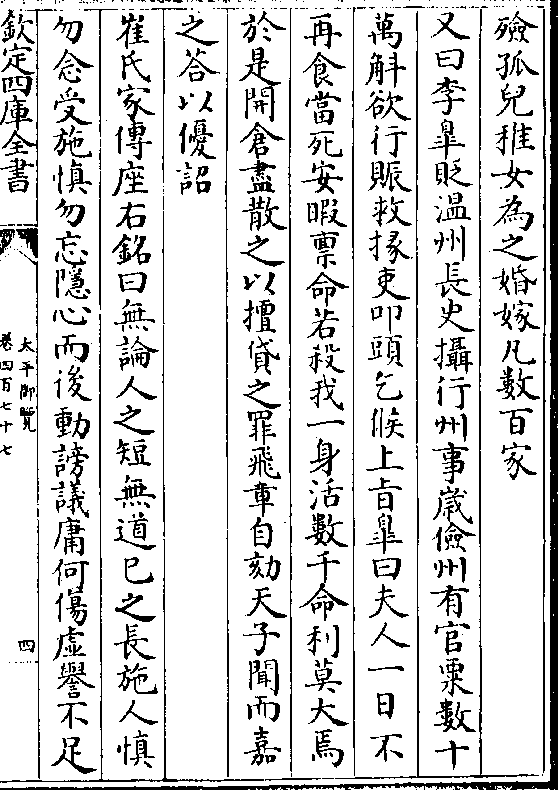 殮孤兒稚女為之婚嫁凡數百家
又曰李臯貶温州長史攝行州事嵗儉州有官粟數十
萬斛欲行賑救掾吏叩頭乞候上旨臯曰夫人一日不
再食當死安暇禀命若殺我一身活數千命利莫大焉
於是開倉盡散之以擅貸之罪飛章自劾天子聞而嘉
之荅以優詔
崔氏家傳座右銘曰無論人之短無道已之長施人慎
勿念受施慎勿忘隱心而後動謗議庸何傷虚譽不足
欽定四庫全書
太平御覧
卷四百七十七
四